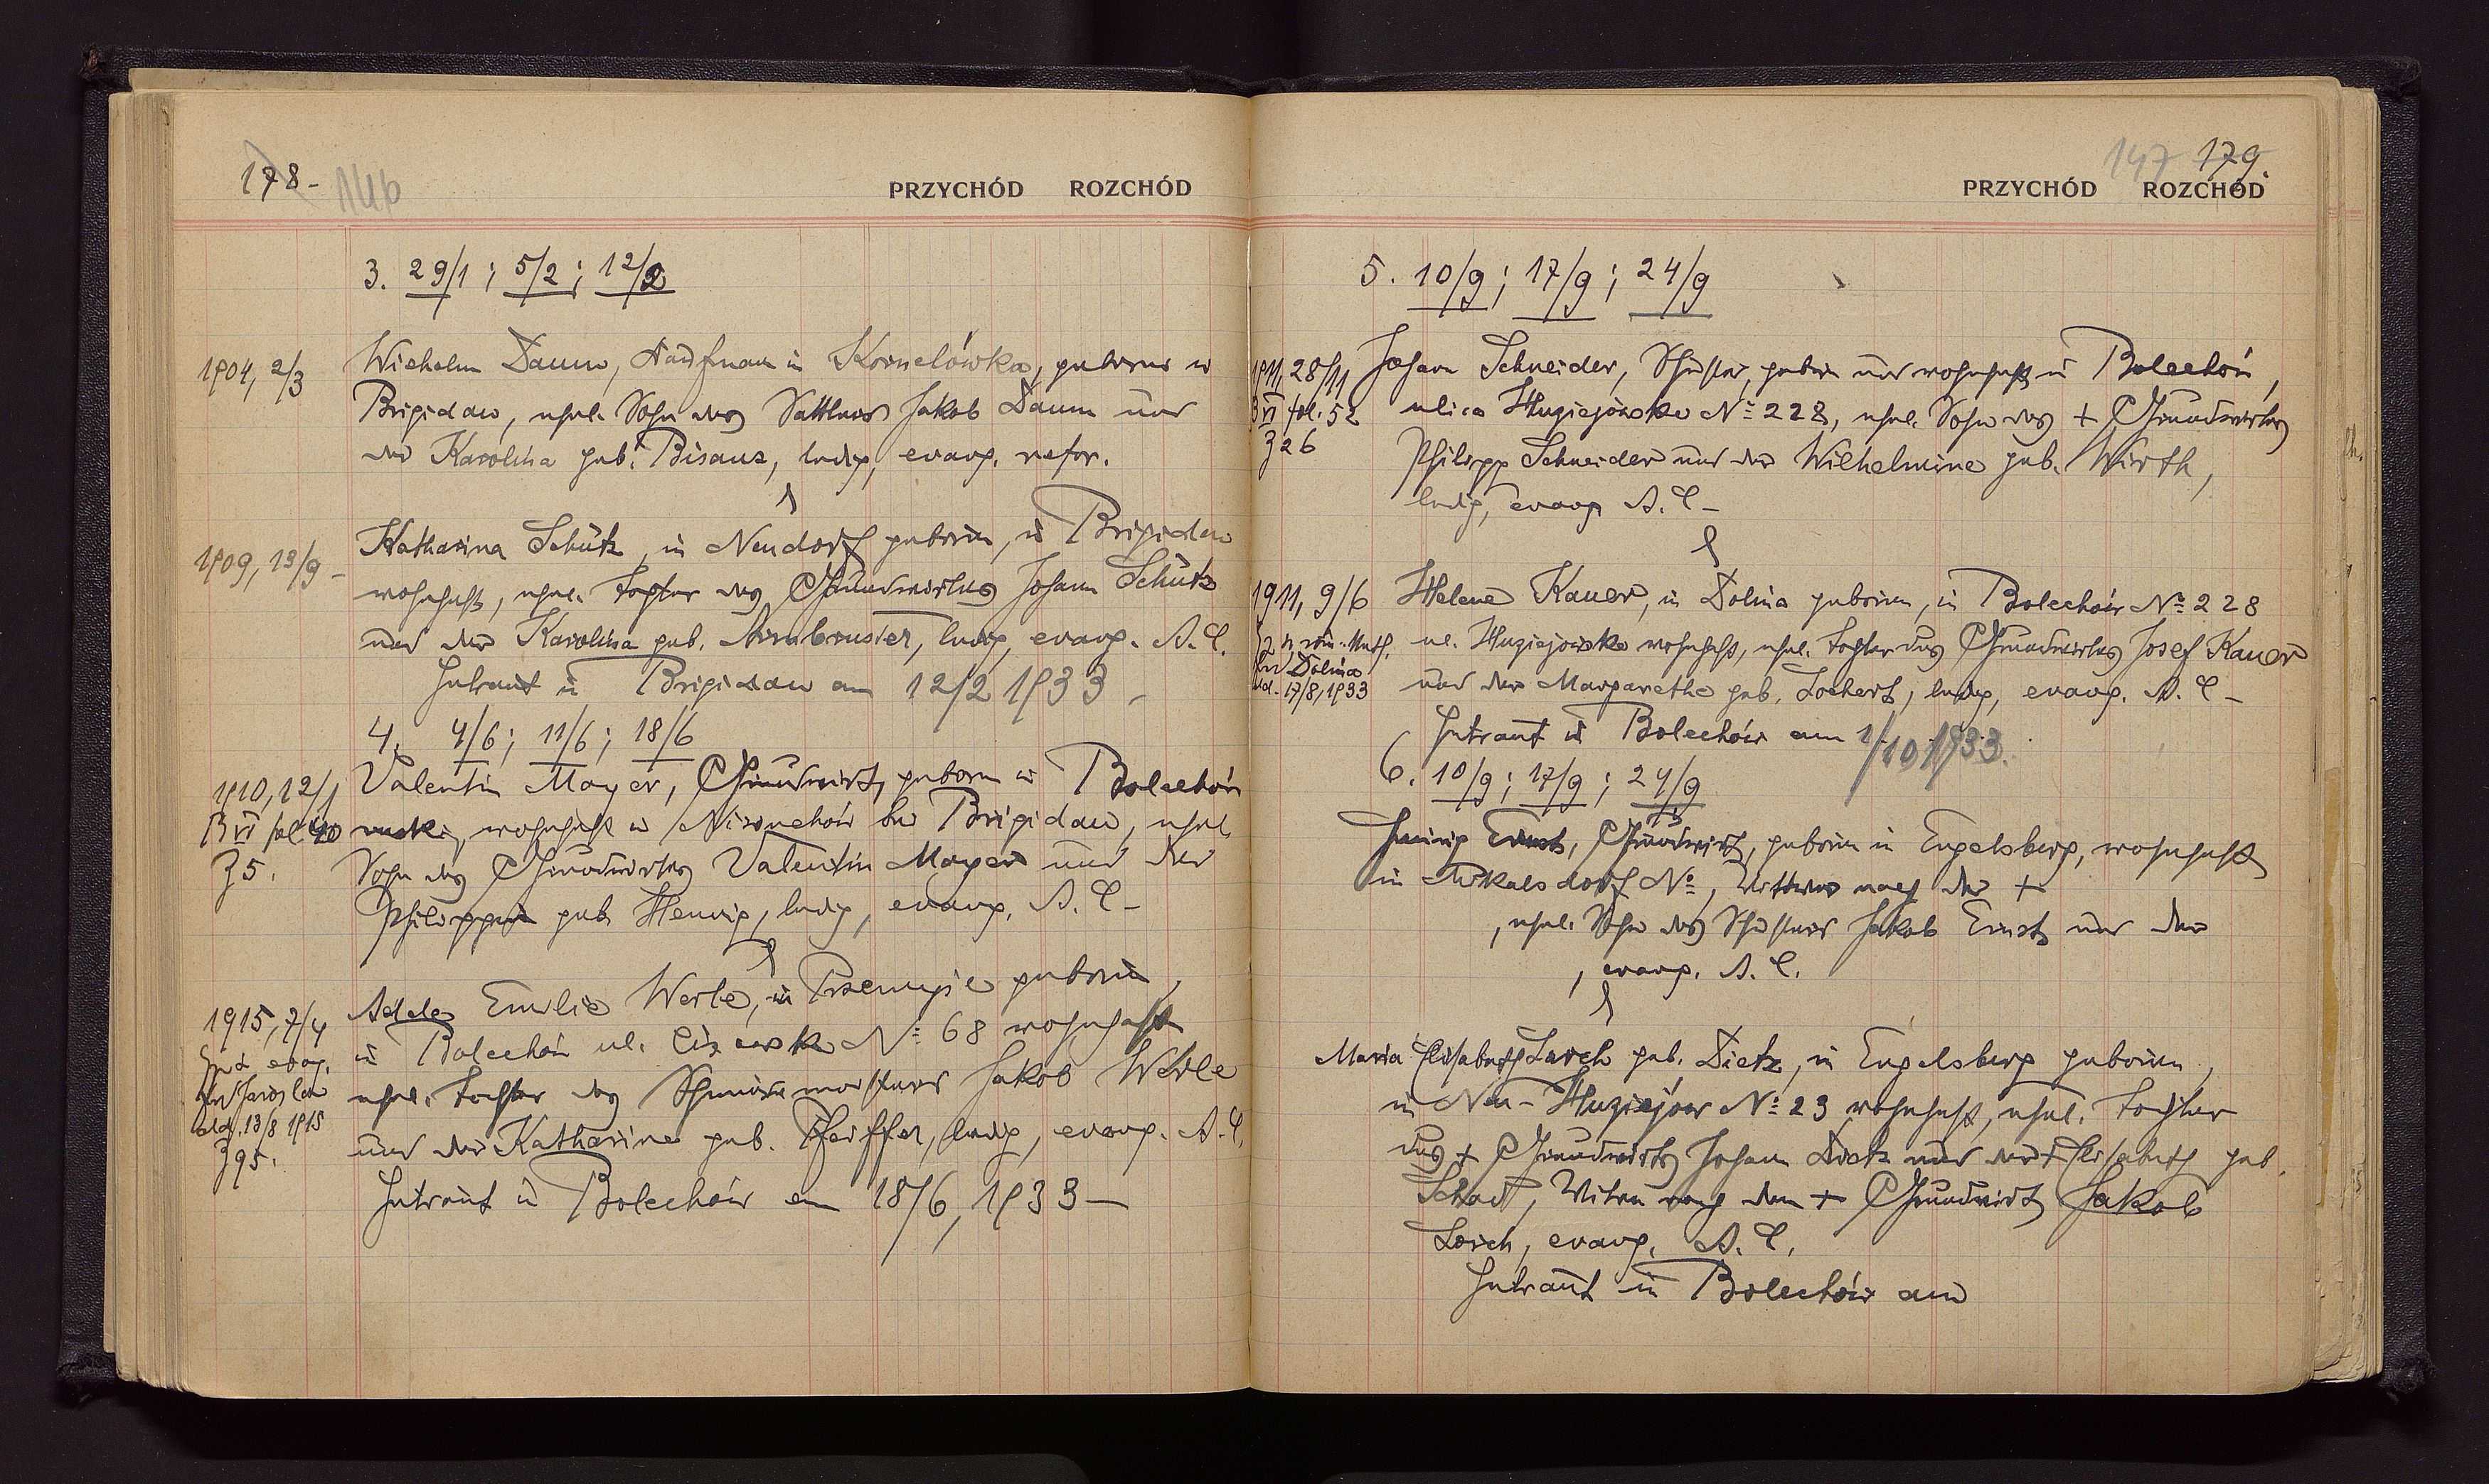 178- 146
PRZYCHÓD ROZCHÓD
3. 29/1; 5/2; 12/2
1904, 2/3
Wilhelm Daum, Kaufmann in Kornelówka, geboren in
Brigidau, ehel. Sohn des Sattlers Jakob Daum und
der Karolina geb. Bisanz, ledig, evang. refor.
&
1909, 19/9 -
Katharina Schütz, in Neudorf geboren, in Brigidau
wohnhaft, ehel. Tochter des Grundwirtes Johann Schütz
und der Karolina geb. Armbruster, ledig, evang. A. C.
Getraut in Brigidau am 12/2 1933 -
4. 4/6; 11/6; 18/6
1910, 12/1
B VI fol. 40
Z 5.
Valentin Mayer, Grundwirt, geboren in Bolechów
wohnhaft in bei Brigidau, ehel.
Sohn des Grundwirtes Valentin Mayer und der
Philippine geb. Hennig, ledig, evang. A. C. -
&
1915, 7/4
evang.
Jaroslau
dd. 13/8 1915
Z 95.
Adele Emilie Werle, in geboren,
in Bolechów ul. No 68 wohnhaft
ehel. Tochter des Jakob Werle
und der Katharina geb. Pfeiffer, ledig, evang. A. C.
Getraut in Bolechów am 18/6, 1933 -
147 179.
PRZYCHÓD ROZCHÓD
5. 10/9; 17/9; 24/9
1911, 28/11
B VI fol. 52
Z 26
Johann Schneider, Schuster, geboren und wohnhaft in Bolechów,
ulica Huziejowska No 228, ehel. Sohn des + Grundwirtes
Philipp Schneider und der Wilhelmine geb. Wirth,
ledig, evang A. C. -
&
1911, 9/6
Dolina
dd. 17/8, 1933
Helene Kauer, in Dolina geboren, in Bolechów No 228
ul. Huziejowska wohnhaft, ehel. Tochter des Grundwirtes Josef Kauer
und der Margarethe geb. Lochert, ledig, evang. A. C. -
Getraut in Bolechów am 1/10 1933.
6. 10/9; 17/9; 24/9
Ernst, Grundwirt, geboren in Engelsberg, wohnhaft
in Mikalsdorf No , Witwer nach der +
, ehel. Sohn des Schusters Jakob Ernst und der
, evang. A. C.
&
Maria Elisabeth Lorch geb. Dietz, in Engelsberg geboren,
in Neu-Huziejów No 23 wohnhaft, ehel. Tochter
des + Grundwirtes Johann Dietz und der + Elisabeth geb.
Schad, Witwe nach dem + Grundwirt Jakob
Lorch, evang. A. C.
Getraut in Bolechów am